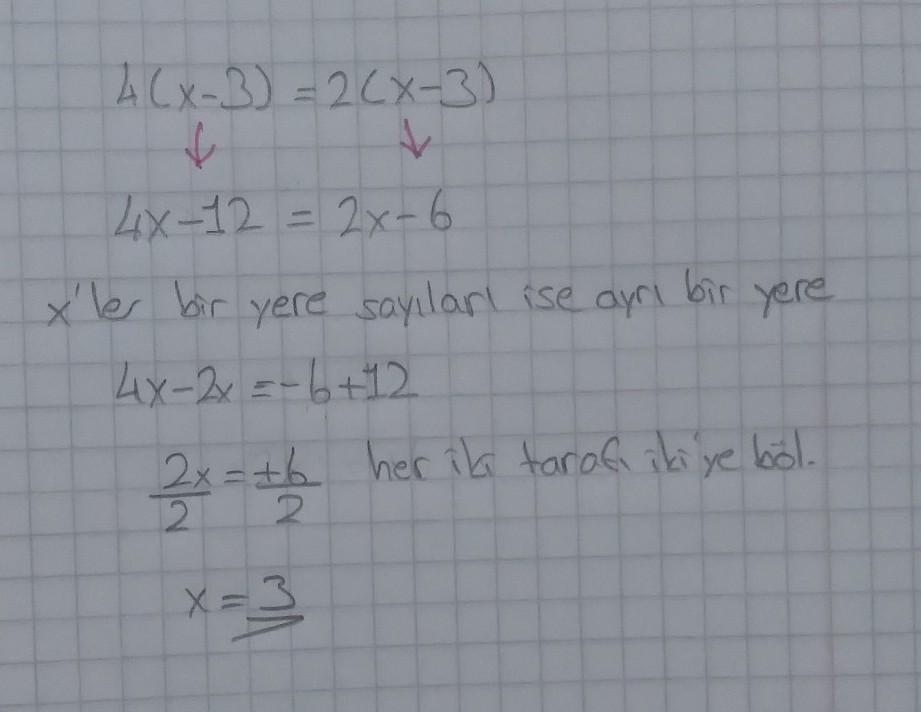 4(x-3) = 2(x-3)
4x-12 = 2x-6
x'ler bir yere sayıları ise ayrı bir yere
4x-2x = -6+12
2x/2 = +6/2 her iki tarafı iki'ye böl.
x = 3